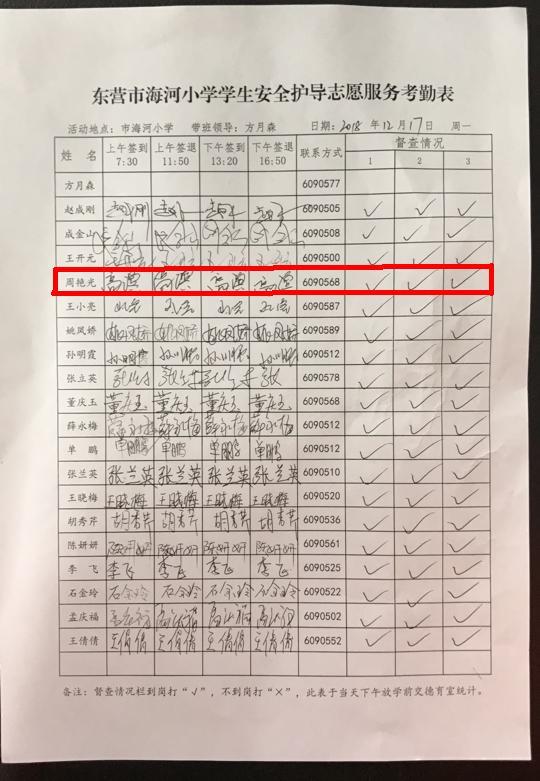 东营市海河小学学生安全护导志愿服务考勤表
活动地点：市海河小学 带班领导：方月森 日期：2018 年12月17日 周一
姓 名 上午签到 7:30 上午签退 11:50 下午签到 13:20 下午签退 16:50 联系方式 督查情况 1 2 3
方月森 6090577
赵成刚 6090505 ✓ ✓ ✓
成金山 6090508 ✓ ✓ ✓
王开元 6090500 ✓ ✓ ✓
周艳光 6090568 ✓ ✓ ✓
王小亮 6090587 ✓ ✓ ✓
姚凤娇 姚凤娇 姚凤娇 姚凤娇 姚凤娇 6090589 ✓ ✓ ✓
孙明霞 6090512 ✓ ✓ ✓
张立英 6090578 ✓ ✓ ✓
董庆玉 董庆玉 董庆玉 董庆玉 董庆玉 6090568 ✓ ✓ ✓
薛永梅 薛永梅 薛永梅 薛永梅 6090512 ✓ ✓ ✓
单 鹏 单鹏 单鹏 单鹏 单鹏 6090512 ✓ ✓ ✓
张兰英 张兰英 张兰英 张兰英 张兰英 6090510 ✓ ✓ ✓
王晓梅 王晓梅 王晓梅 王晓梅 王晓梅 6090520 ✓ ✓ ✓
胡秀芹 胡秀芹 胡秀芹 胡秀芹 胡秀芹 6090536 ✓ ✓ ✓
陈妍妍 陈妍妍 陈妍妍 陈妍妍 陈妍妍 6090561 ✓ ✓ ✓
李 飞 李飞 李飞 李飞 李飞 6090525 ✓ ✓ ✓
石金玲 石金玲 石金玲 石金玲 石金玲 6090522 ✓ ✓ ✓
孟庆福 6090532 ✓ ✓ ✓
王倩倩 王倩倩 王倩倩 王倩倩 王倩倩 6090552 ✓ ✓ ✓
备注：督查情况栏到岗打“√”，不到岗打“×”，此表于当天下午放学前交德育室统计。